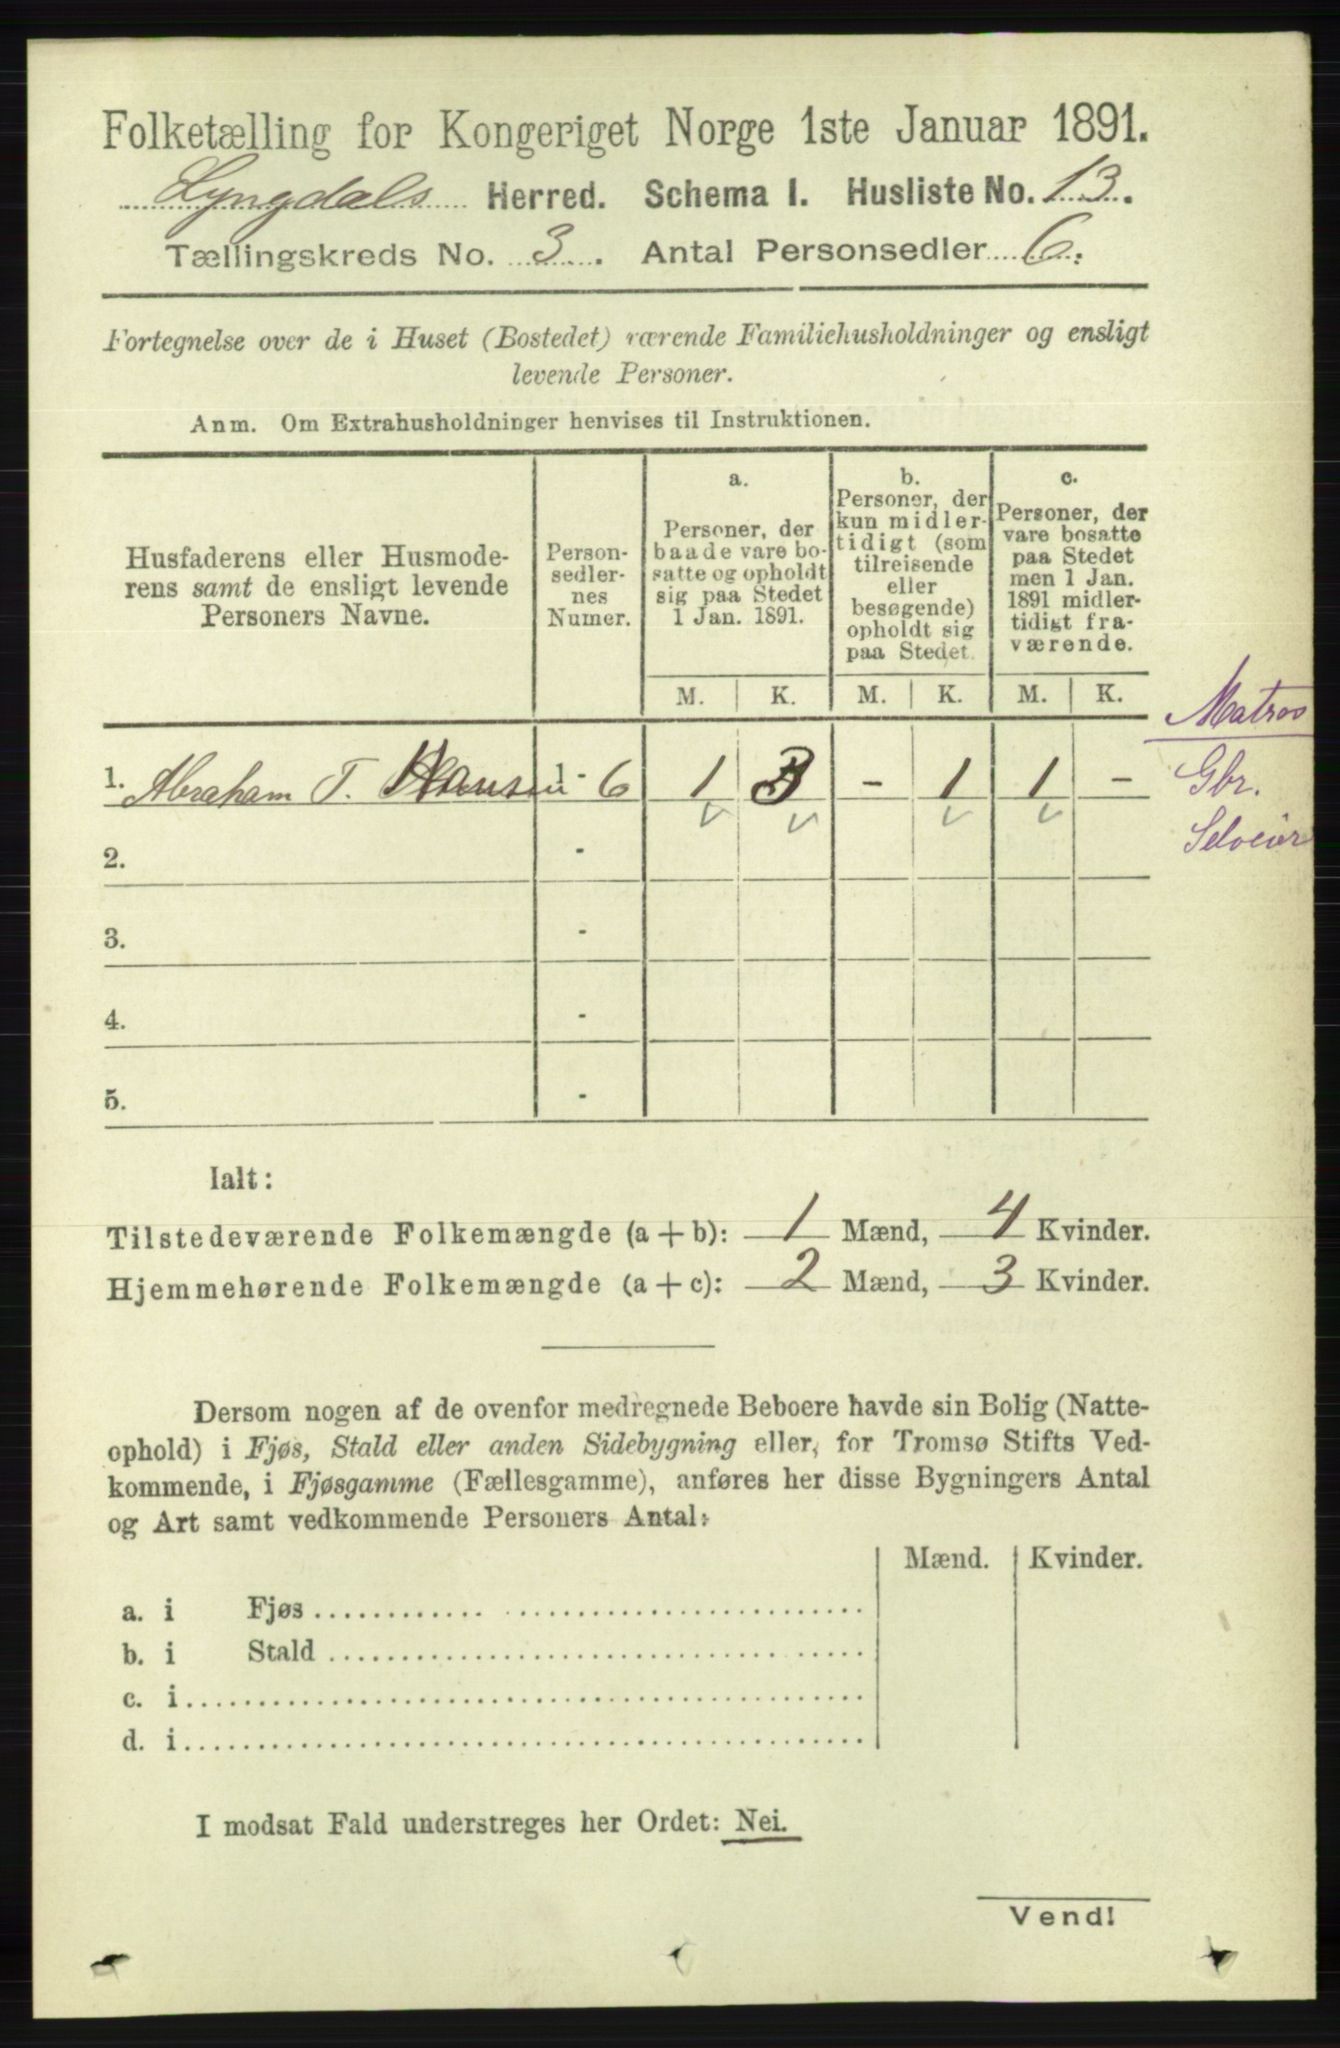 Folketælling for Kongeriget Norge 1ste Januar 1891.
Lyngdals Herred. Schema I. Husliste No. 13.
Tællingskreds No. 3. Antal Personsedler 6.
Fortegnelse over de i Huset (Bostedet) værende Familiehusholdninger og ensligt
levende Personer.
Anm. Om Extrahusholdninger henvises til Instruktionen.
Husfaderens eller Husmode-
rens samt de ensligt levende
Personers Navne.
Person-
sedler-
nes
Numer.
a.
Personer, der
baade vare bo-
satte og opholdt
sig paa Stedet
1 Jan. 1891.
b.
Personer, der
kun midler-
tidigt (som
tilreisende
eller
besøgende)
opholdt sig
paa Stedet.
c.
Personer, der
vare bosatte
paa Stedet
men 1 Jan.
1891 midler-
tidigt fra-
værende.
M. K. M. K. M. K.
Matros
1. Abraham T. Hansen 1 - 6 1 3 - 1 1 -
Gbr.
Selveier
2. -
3. -
4. -
5. -
Ialt:
Tilstedeværende Folkemængde (a + b): 1 Mænd, 4 Kvinder.
Hjemmehørende Folkemængde (a + c): 2 Mænd, 3 Kvinder.
Dersom nogen af de ovenfor medregnede Beboere havde sin Bolig (Natte-
ophold) i Fjøs, Stald eller anden Sidebygning eller, for Tromsø Stifts Ved-
kommende, i Fjøsgamme (Fællesgamme), anføres her disse Bygningers Antal
og Art samt vedkommende Personers Antal:
Mænd. Kvinder.
a. i Fjøs
b. i Stald
c. i
d. i
I modsat Fald understreges her Ordet: Nei.
Vend!